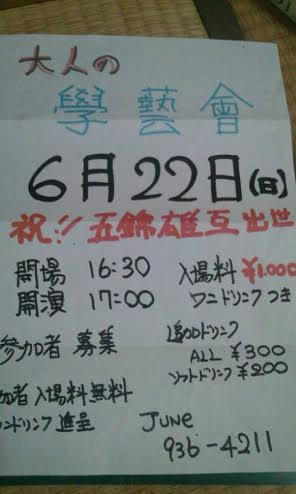 大人の
學藝會
6月22日(日)
祝!!五錦雄互出世
開場 16:30
開演 17:00
入場料 ¥1.000
ワンドリンクつき
参加者 募集
追加ドリンク
ALL ¥300
ソフトドリンク ¥200
加者入場料無料
ンドリンク進呈
JUNE
936-4211